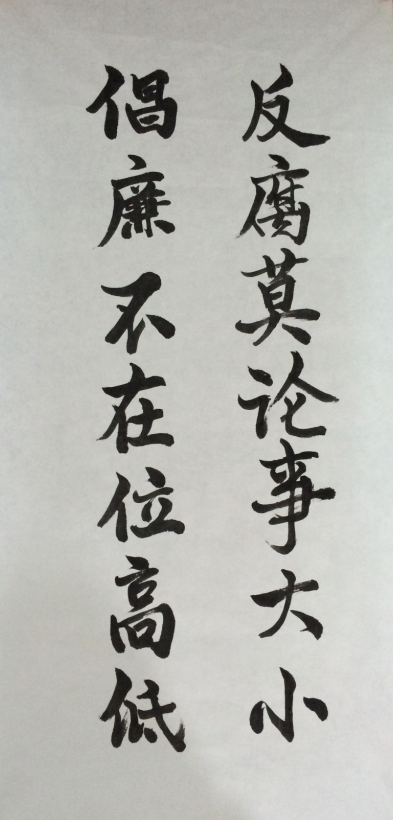 反腐莫论事大小
倡廉不在位高低